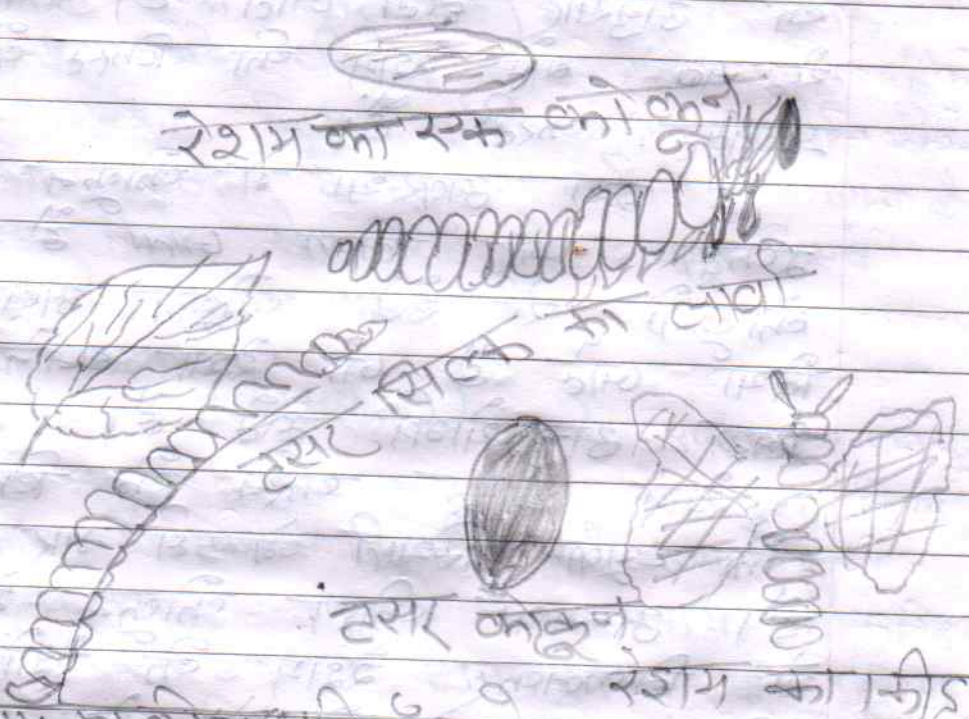 रेशम का एक कोकून
टसर सिल्क का लार्वा
टसर कोकून
रेशम का कीड़